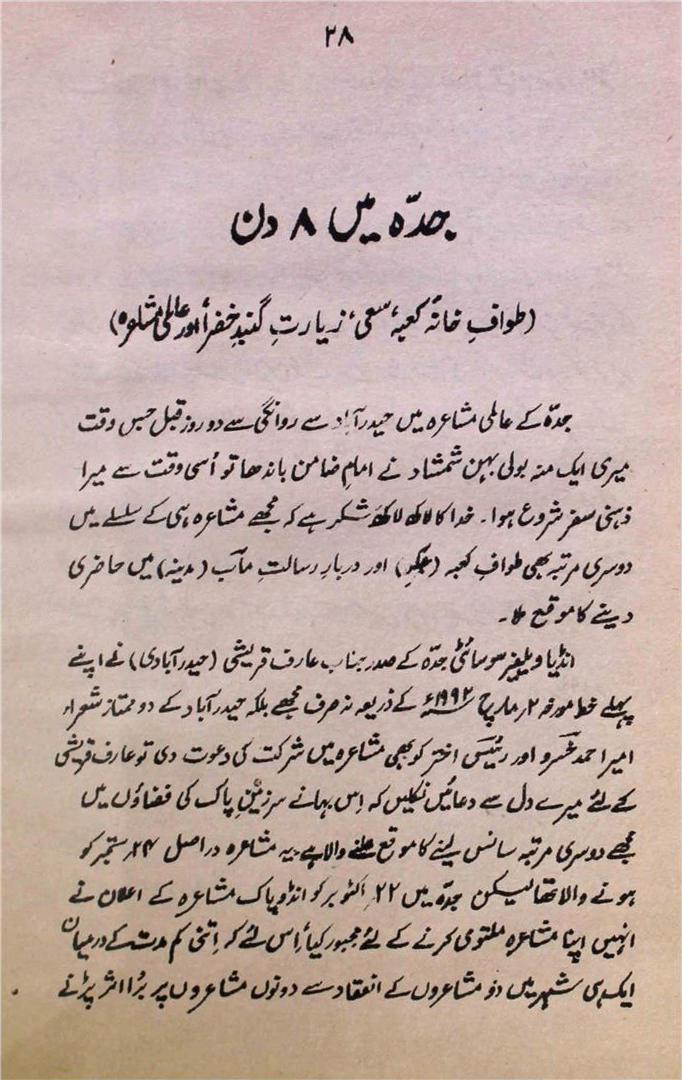 ۳۸
جدّہ میں ۸ دن
(طوافِ خانۂ کعبہ، سعی، زیارتِ گنبدِ خضرأ اور عالمی مشاعرہ)
جدّہ کے عالمی مشاعرہ میں حیدرآباد سے روانگی سے دو روز قبل جس وقت
میری ایک منہ بولی بہن شمشاد نے امامِ ضامن باندھا تو اُسی وقت سے میرا
ذہنی سفر شروع ہوا۔ خدا کا لاکھ لاکھ شکر ہے کہ مجھے مشاعرہ ہی کے سلسلے میں
دوسری مرتبہ بھی طوافِ کعبہ (مکہ) اور دربارِ رسالتِ مآب (مدینہ) میں حاضری
دینے کا موقع ملا۔
انڈیا ویلفیر سوسائٹی جدّہ کے صدر جناب عارف قریشی (حیدرآبادی) نے اپنے
پہلے خط مورخہ ۲؍ مارچ ۱۹۹۲ء کے ذریعہ نہ صرف مجھے بلکہ حیدرآباد کے دو ممتاز شعراء
امیر احمد خسرو اور رئیس اختر کو بھی مشاعرہ میں شرکت کی دعوت دی تو عارف قریشی
کے لئے میرے دل سے دعائیں نکلیں کہ اِس بہانے سرزمینِ پاک کی فضاؤں میں
مجھے دوسری مرتبہ سانس لینے کا موقع ملنے والا ہے۔ یہ مشاعرہ دراصل ۲۴؍ ستمبر کو
ہونے والا تھا لیکن جدّہ میں ۲۲؍ اکٹوبر کو انڈو پاک مشاعرہ کے اعلان نے
انہیں اپنا مشاعرہ ملتوی کرنے کے لئے مجبور کیا، اِس لئے کہ اِتنی کم مدت کے درمیان
ایک ہی شہر میں دو مشاعروں کے انعقاد سے دونوں مشاعروں پر بُرا اثر پڑنے